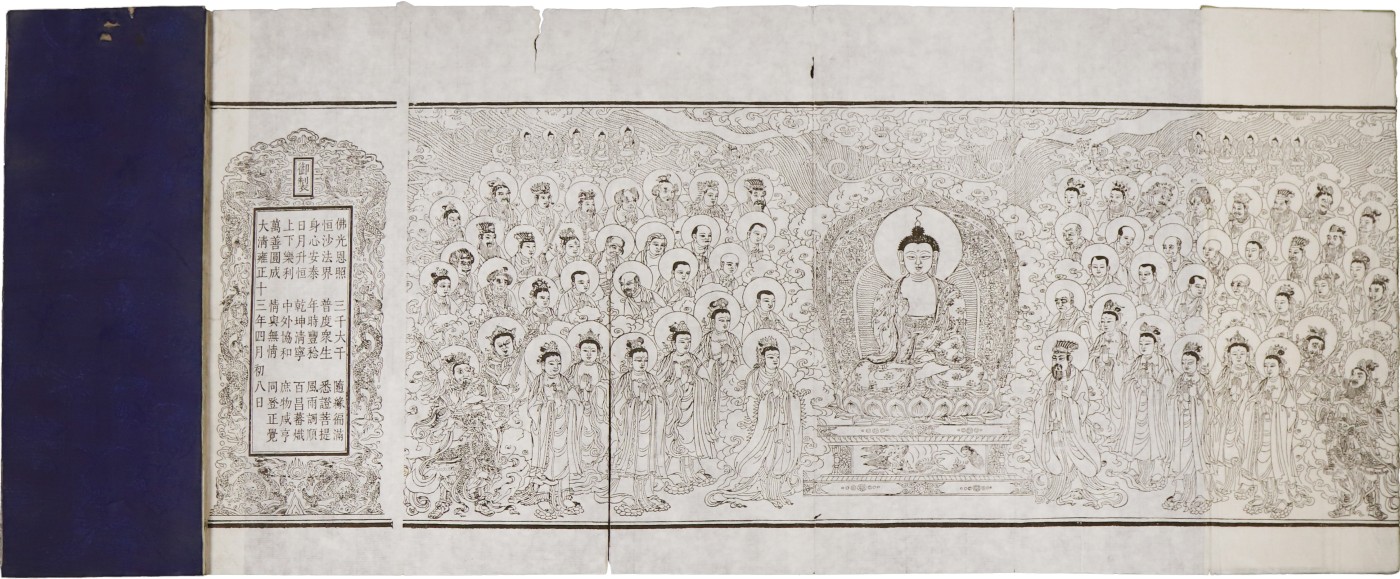 御製
佛光恩照 三千大千 隨緣福滿
恒沙法界 普度衆生 悉證菩提
身心安泰 年時豐稔 風雨調順
日月升恒 乾坤清寧 百昌蕃熾
上下樂利 中外協和 庶物咸亨
萬善圓成 情與無情 同登正覺
大清雍正十三年四月初八日